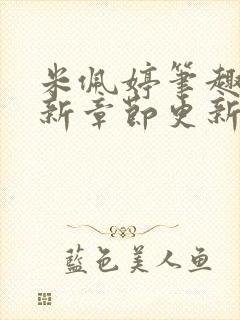 米佩婷笔趣
新章节更新
蓝色美人鱼